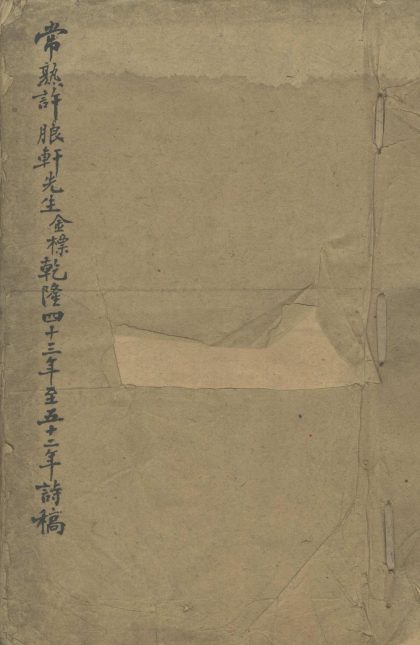 常熟許朖軒先生金檪乾隆四十三年至五十二年詩稿